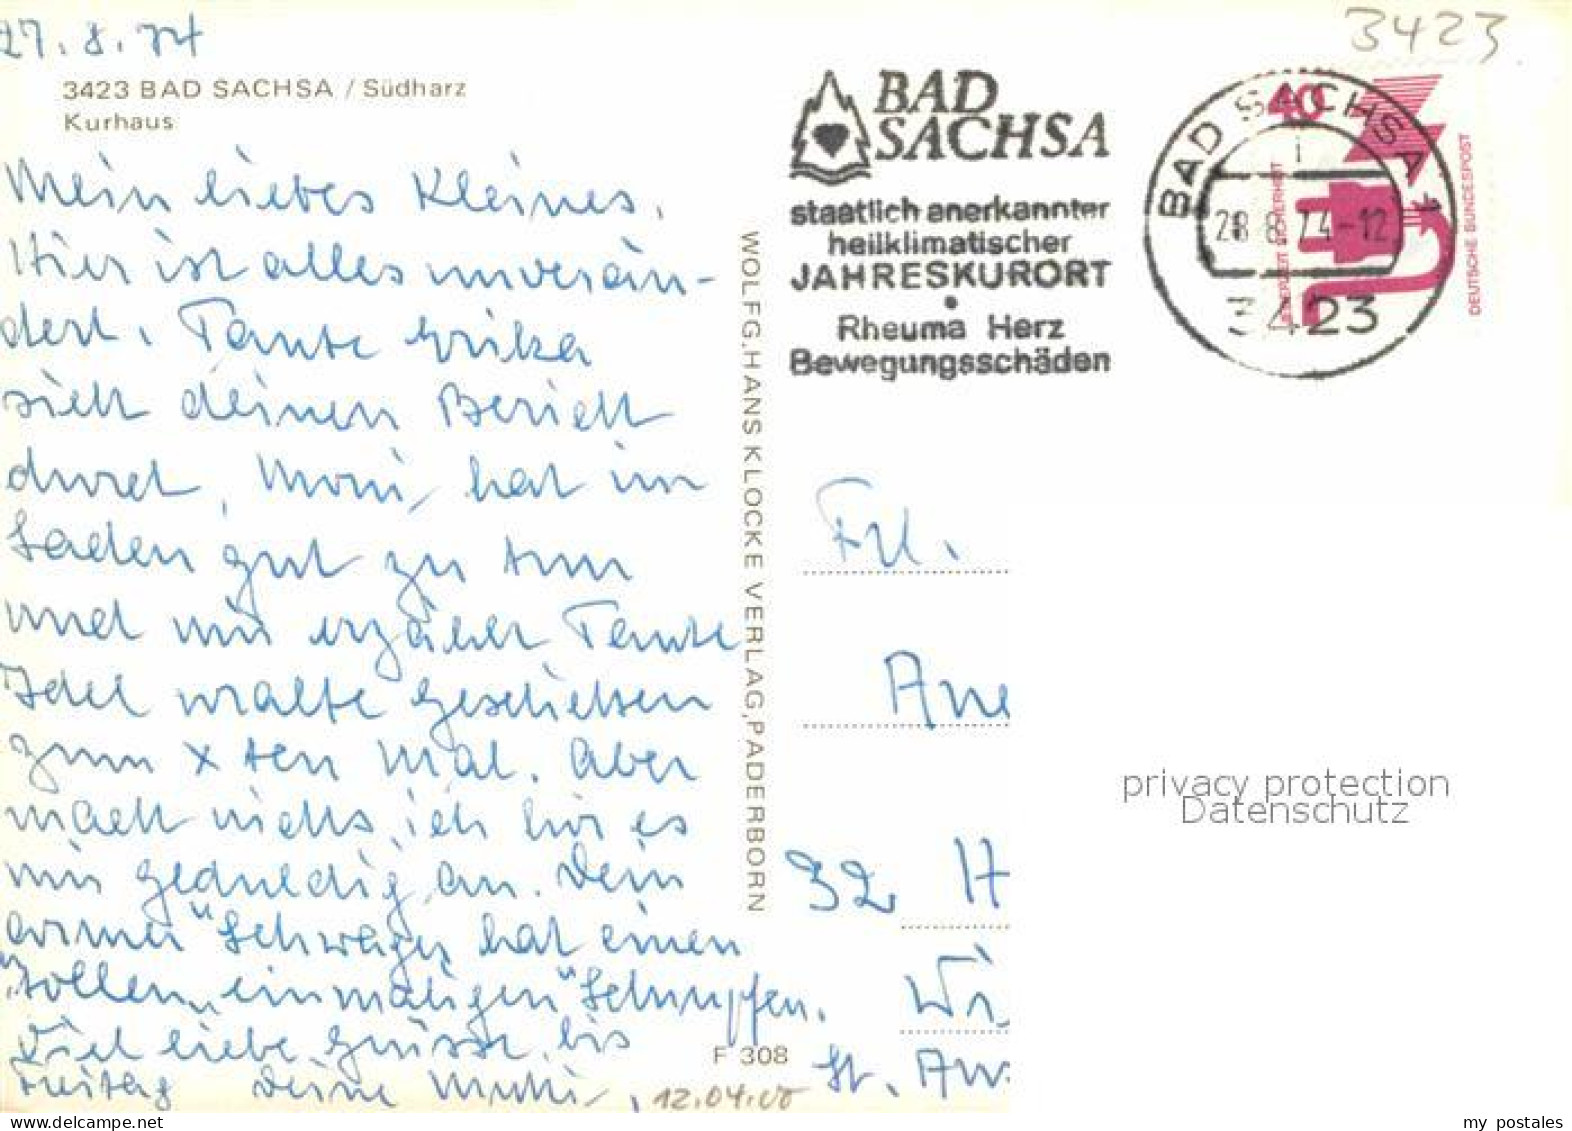 27.8.74
3423 BAD SACHSA / Südharz
Kurhaus
Mein liebes Kleines,
Hier ist alles unverän-
dert. Tante Erika
sieht deinen Bericht
durch, Moni hat im
Laden gut zu tun
und mir erzählt Tante
Idel uralte Geschichten
zum x ten Mal. Aber
macht nichts, ich hör es
mir geduldig an. Dein
armer "Schwager" hat einen
"tollen, einmaligen" Schnupfen.
Viel liebe Grüsse, bis
Freitag Deine Mutti.
12.04.00
WOLFG.HANS KLOCKE VERLAG,PADERBORN
F 308
3423
BAD
SACHSA
staatlich anerkannter
heilklimatischer
JAHRESKURORT
•
Rheuma Herz
Bewegungsschäden
BAD SACHSA 1
28.8.74-12
3423
40
JEDERZEIT SICHERHEIT
DEUTSCHE BUNDESPOST
Frl.
Ane
32 H
Wi
St. An
privacy protection
Datenschutz
my postales